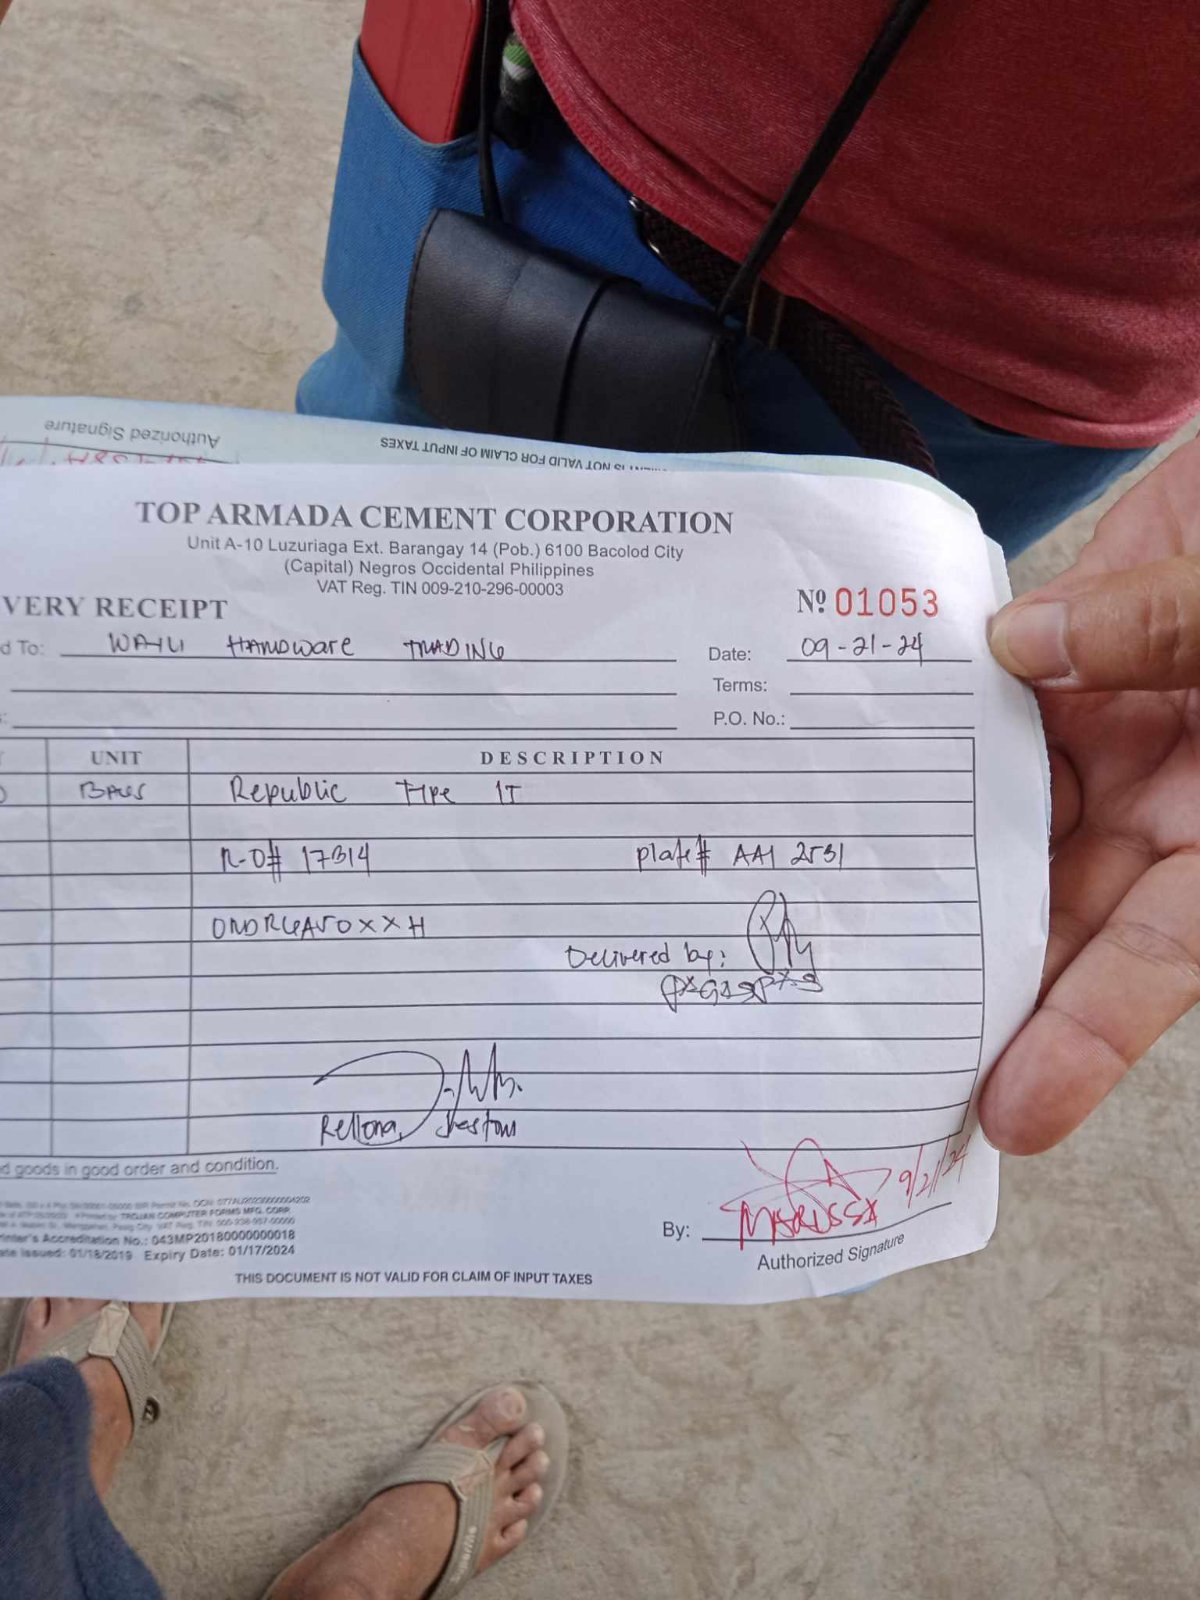 Authorized Signature
NOT VALID FOR CLAIM OF INPUT TAXES
TOP ARMADA CEMENT CORPORATION
Unit A-10 Luzuriaga Ext. Barangay 14 (Pob.) 6100 Bacolod City
(Capital) Negros Occidental Philippines
VAT Reg. TIN 009-210-296-00003
VERY RECEIPT
Nº 01053
d To: Hardware TRADING
Date: 09-21-24
Terms:
P.O. No.:
UNIT DESCRIPTION
BAGS Republic Type 1T
R-O# 17314 plate# AAI 2531
Delivered by:
Rellona,
d goods in good order and condition.
TROJAN COMPUTER FORMS MFG. CORP.
inter's Accreditation No.: 043MP20180000000018
ate Issued: 01/18/2019 Expiry Date: 01/17/2024
9/21/24
By:
Authorized Signature
THIS DOCUMENT IS NOT VALID FOR CLAIM OF INPUT TAXES